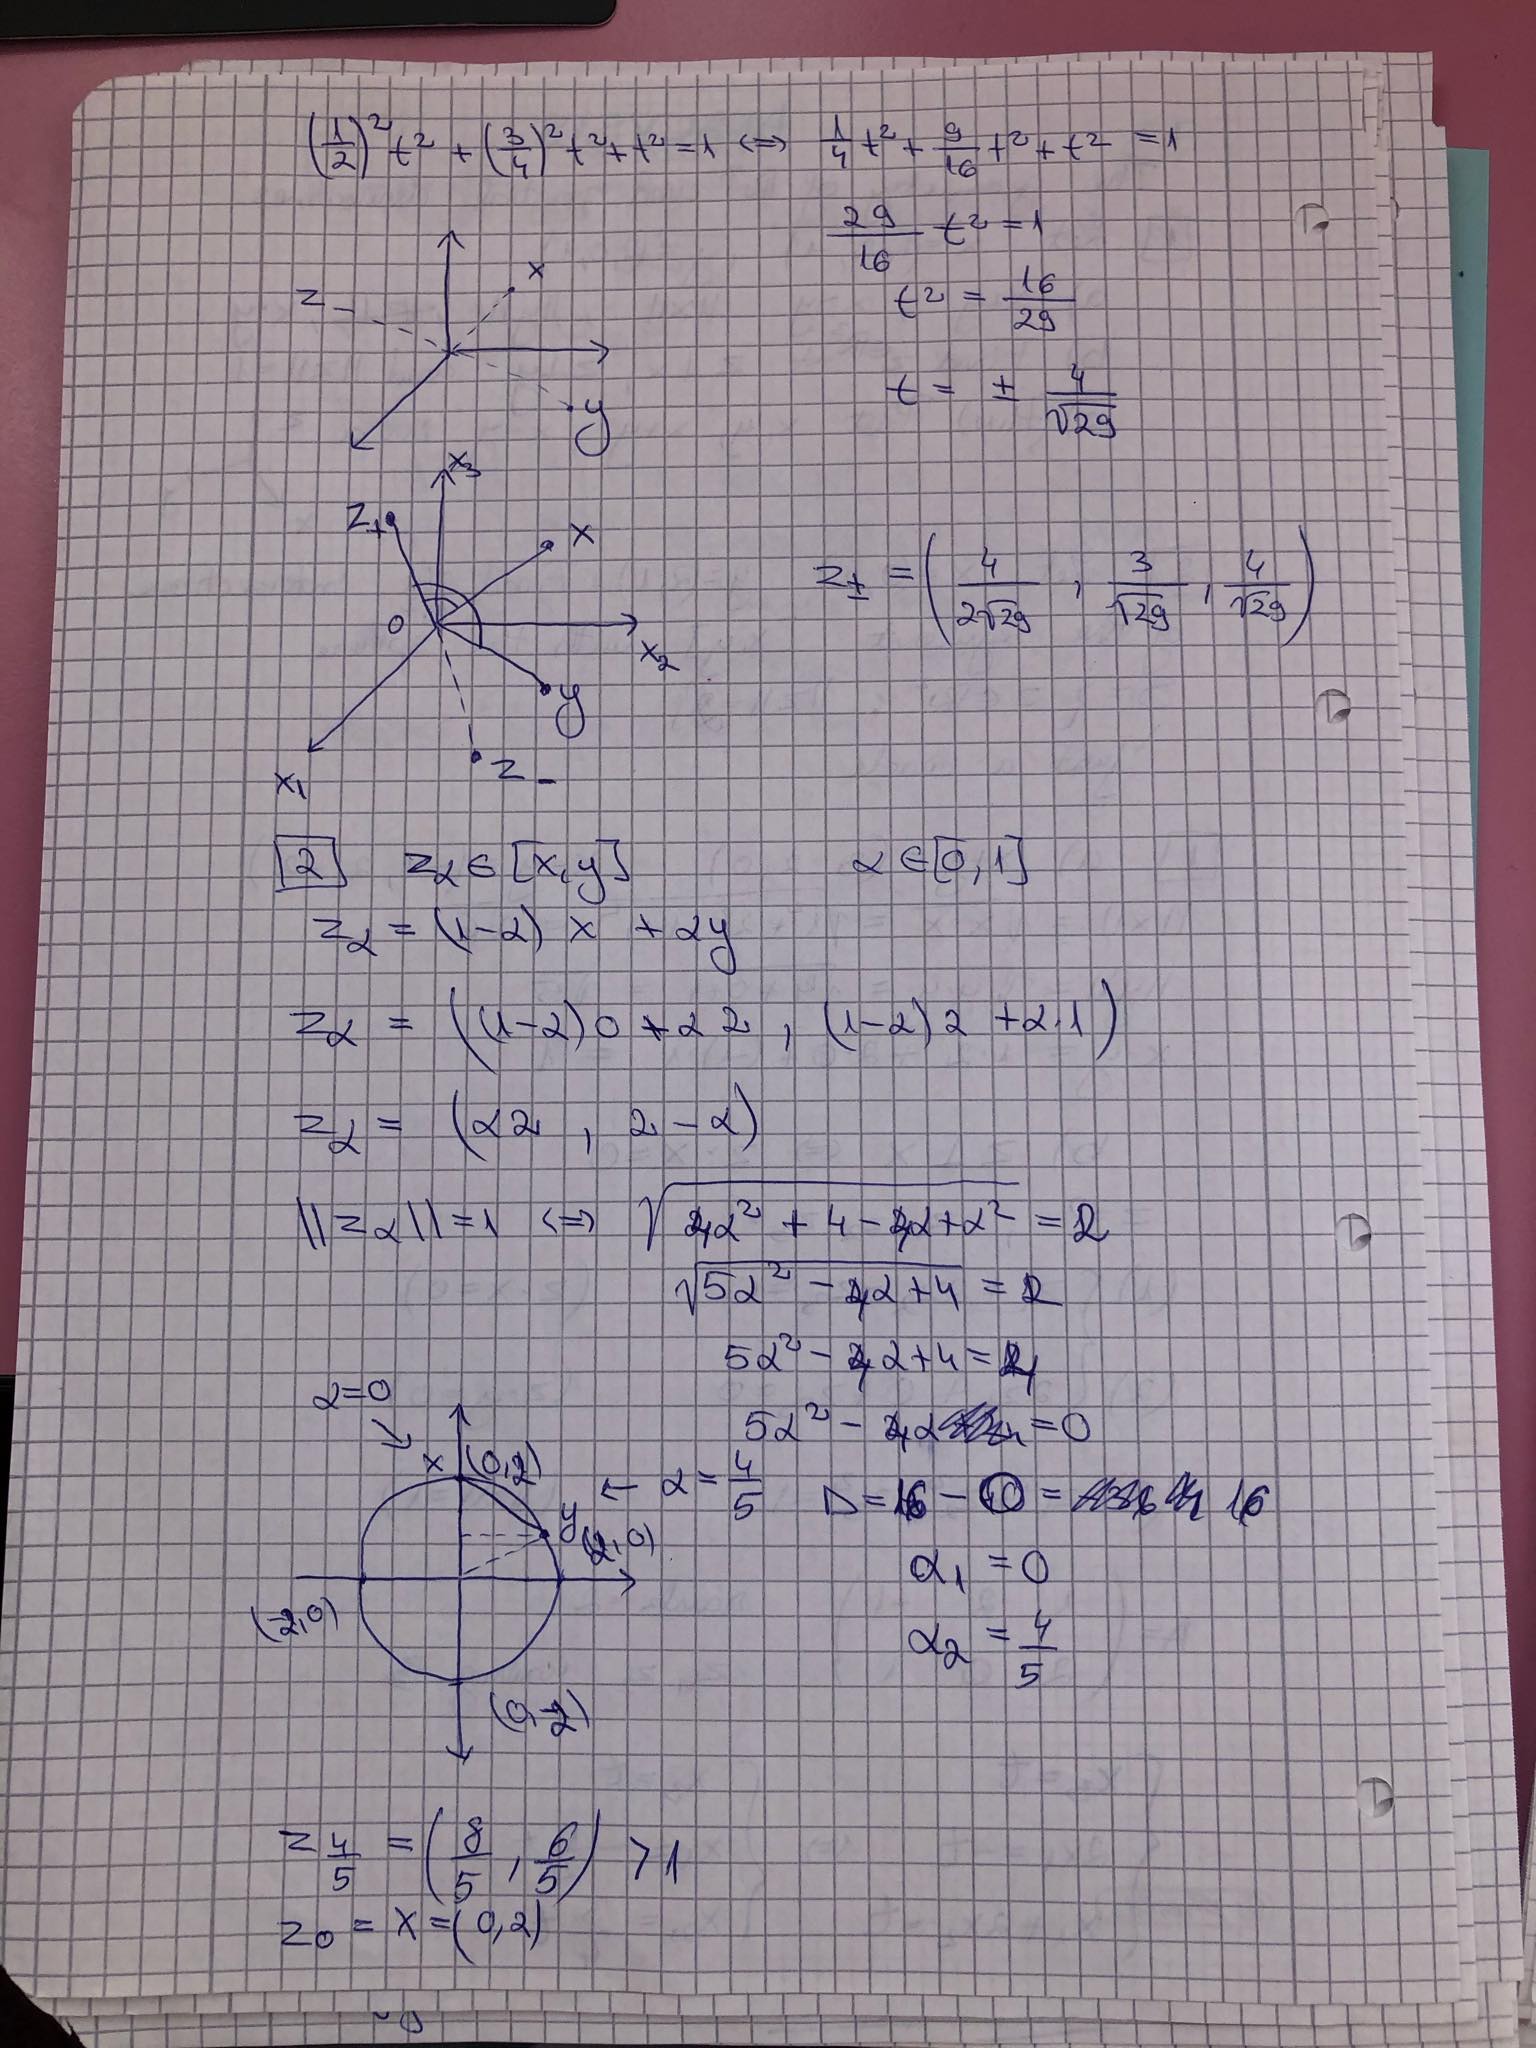 (1/2)² t² + (3/4)² t² + t² = 1 <=> 1/4 t² + 9/16 t² + t² = 1
29/16 t² = 1
t² = 16/29
t = ± 4/√29
z
x
y
x₃
z₊
x
0
x₂
y
x₁
z₋
z± = (4/2√29 , 3/√29 , 4/√29)
2 zα ∈ [x,y] α ∈ [0,1]
zα = (1-α) x + αy
zα = ((1-α)0 + α2 , (1-α)2 + α·1)
zα = (α2 , 2-α)
||zα|| = 1 <=> √4α² + 4 - 4α + α² = 2
√5α² - 4α + 4 = 2
5α² - 4α + 4 = 4
5α² - 4α = 0
D = 16 - 0 = 16
α₁ = 0
α₂ = 4/5
α = 0
x (0,2)
← α = 4/5
y
(2,0)
(-2,0)
(0,-2)
z 4/5 = (8/5 , 6/5) > 1
z₀ = x = (0,2)